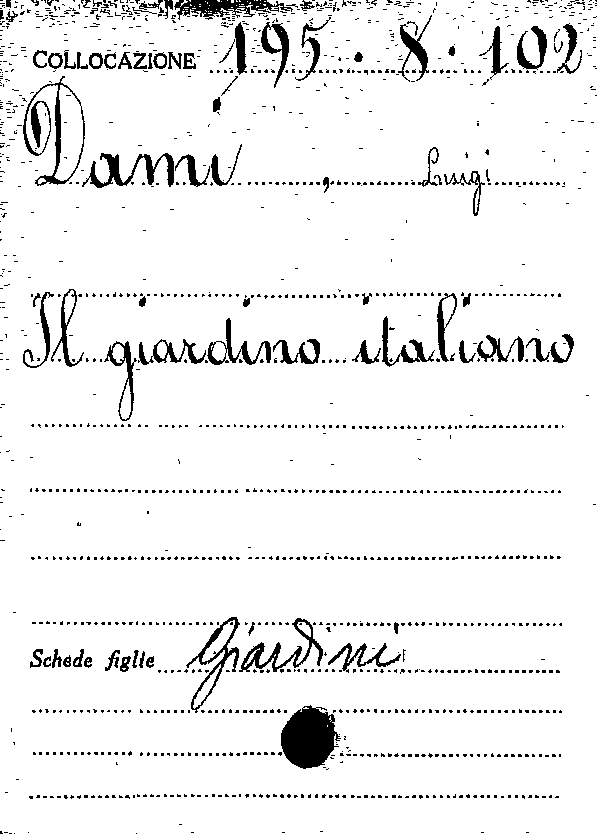 COLLOCAZIONE 195.8.102
Dami, Luigi
Il giardino italiano
Schede figlie Giardini